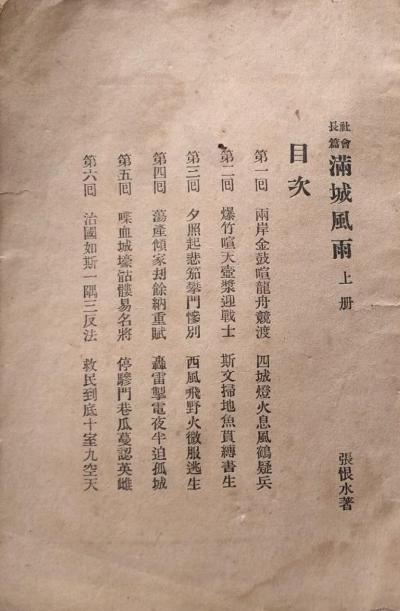 社會長篇 滿城風雨 上册 張恨水著
目次
第一回 兩岸金鼓喧龍舟競渡 四城燈火息風鶴疑兵
第二回 爆竹喧天壺漿迎戰士 斯文掃地魚貫縛書生
第三回 夕照起悲笳攀門慘別 西風飛野火微服逃生
第四回 蕩產傾家刧餘納重賦 轟雷掣電夜半迫孤城
第五回 喋血城壕骷髏易名將 停驂門巷瓜蔓認英雌
第六回 治國如斯一隅三反法 救民到底十室九空天